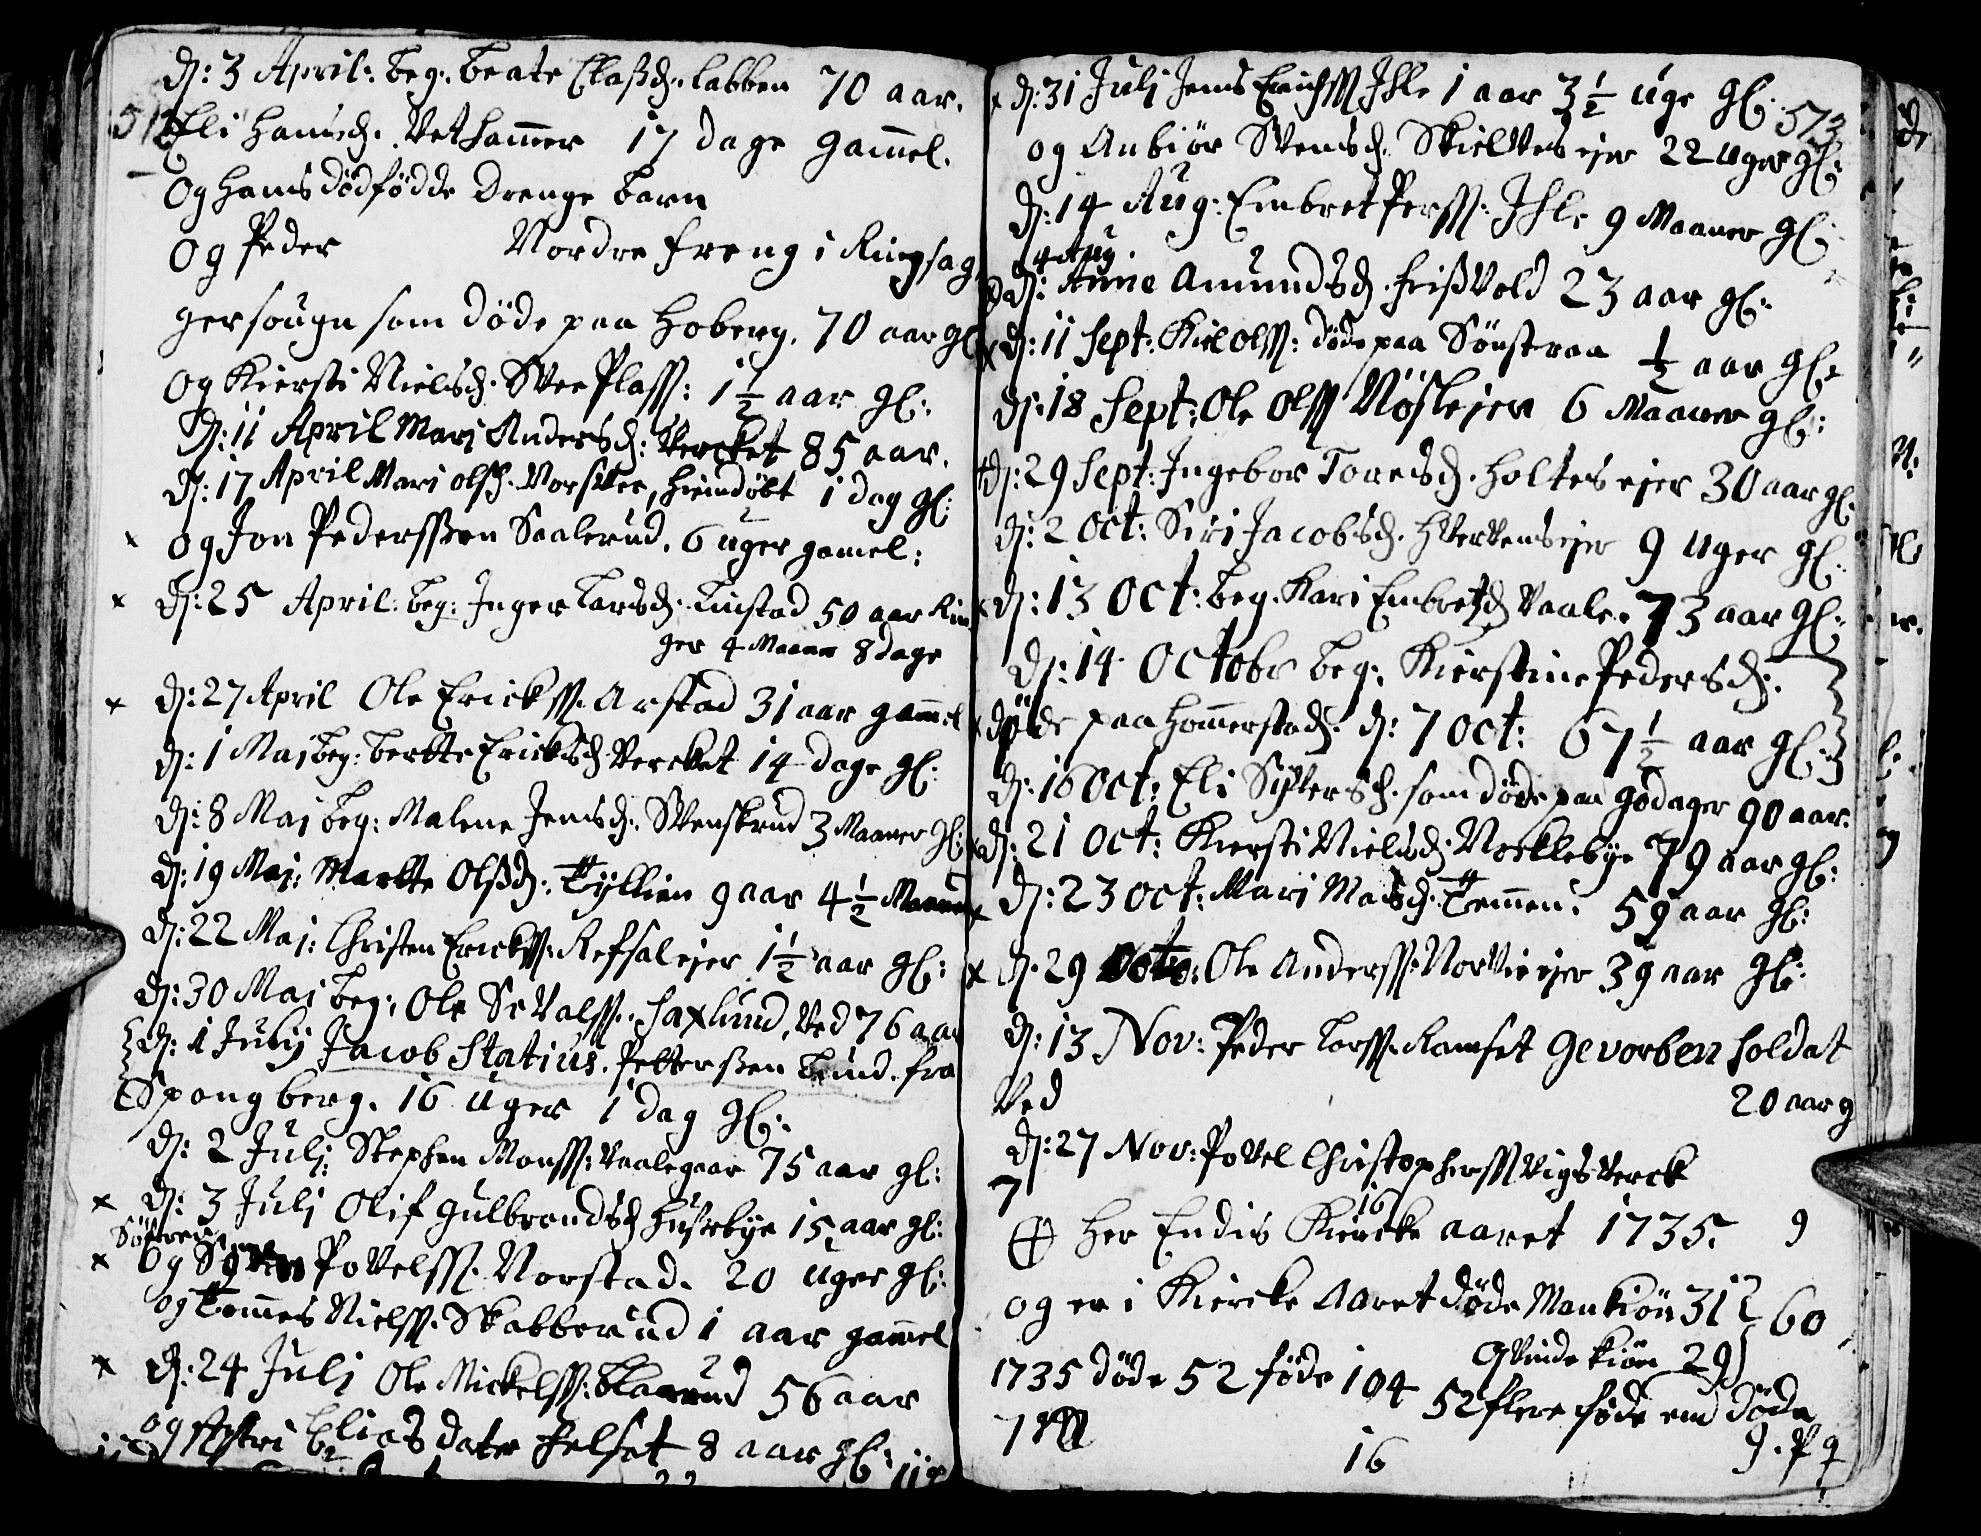 d: 3 April: beg: Beate Claßd. Labben 70 aar.
512
Eli Hansd. Vethammer 17 dage gam̅el.
Og hans dødfødde drenge barn
Og Peder Nordre Freng i Ringsag
gersougn som døde paa Hoberg. 70 aar gl
Og Kiersti Nielsd. Svee Plass: 1½ aar gl:
d: 11 April Mari Andersd: Vercket 85 aar.
d: 17 April Mari olsd. Norsvee, hiemdøbt 1 dag gl:
× Og Jon Pederssøn Saalerud. 6 uger gamel:
× d: 25 April: beg: Inger Larsd. Linstad 50 aar
ger 4 Maaner 8 dage
× d: 27 April Ole Ericks. Arstad 31 aar gam̅el
d: 1 Maj beg: Berthe Ericksd Vercket 14 dage gl:
d: 8 Maj beg: Malene Jensd. Svenskrud 3 Maaner gl:
d: 19 Maj: Marthe Olsd. Tyllien 9 aar 4½ Maaned
d: 22 Maj: Christen Ericks. Refsalejer 1½ aar gl:
d: 30 Maj beg: Ole Sevals. Saxlund, Ved 76 aar
d: 1 Julij Jacob Statius. Petterßen Lund. fra
Spongberg. 16 uger 1 dag gl:
d: 2 Julj: Stephen Monss: Vaalegaar 75 aar gl:
× d: 3 Julj Olif Gulbrandsd Husebye 15 aar gl:
× Og Povelss. Norstad. 20 uger gl:
og Tom̅es Nielss. Skabberud 1 aar gam̅el
× d: 24 Julj Ole Mickelss: Blaarud 56 aar
og Astri Eliasdater Helset 8 aar gl:
× d: 31 Julj Jens Erichss Ihle 1 aar 3½ uge gl:
573
og Anbiør Svensd. Skielvesejer 22 uger gl:
d: 14 Aug: Embret Perss: Ihle 9 Maaner gl:
4 Aug.
d: Anne Amundsd. Frißvold 23 aar gl:
× d: 11 Sept: Kiel Olss: døde paa Sønsteraa ½ aar gl:
d: 18 Sept: Ole Olss Nøslejer 6 Maaner gl:
d: 29 Sept: Ingebor Toresd. Holtesejer 30 aar gl:
d: 2 Oct: Siri Jacobsd. Hvervensejer 9 uger gl:
× d: 13 Oct: beg. Kari Embretsd Vaale. 73 aar gl:
d: 14 Octobr beg: Kierstine Pedersd:
× døde paa Hommerstad. d: 7 Oct: 67½ aar gl:
d: 16 Oct: Eli Sifversd. som døde paa Godager 90 aar.
× d: 21 Oct: Kiersti Nielsd. Nocklebye 79 aar gl:
× d: 23 Oct: Mari Mads d. Tem̅en. 59 aar gl:
× d. 29 Octo: Ole Anderss. Norviejer 39 aar gl:
d: 13 Nov: Peder Larss. Ramset Gevorben soldat
Ved 20 aar g
d: 27 Nov: Povel Christopherss Vigs Verck
7 16
Her Endis Kiercke aaret 1735. 9
og er i Kiercke Aaret døde Mankiøn 31 } 60
Qvinde kiøn 29
1735 døde 52 føde 104 52 flere føde end døde
16